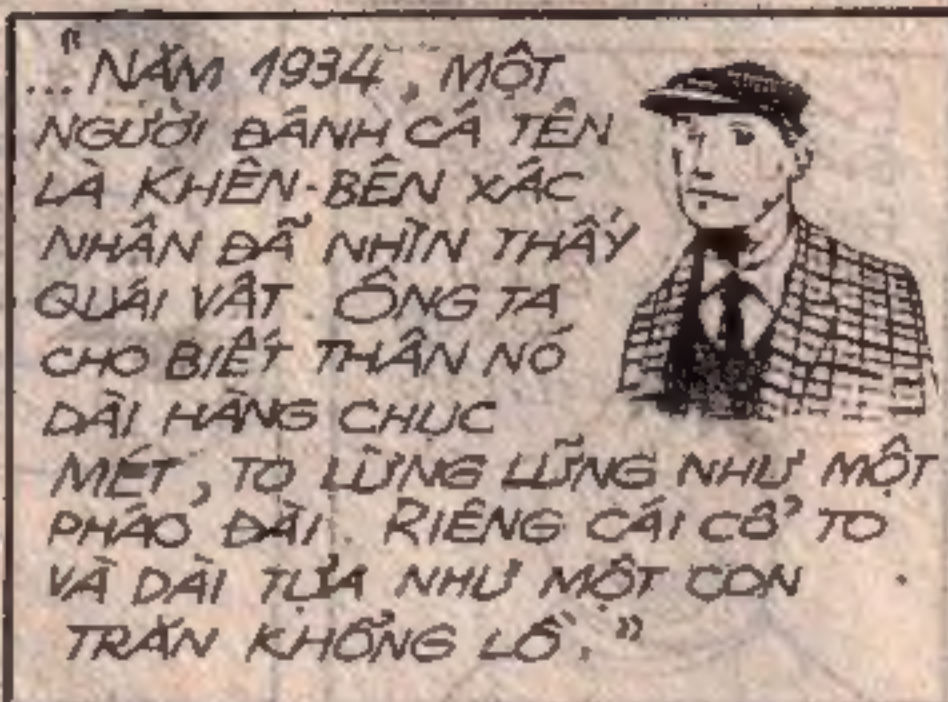 ..."NĂM 1934, MỘT
NGƯỜI ĐÁNH CÁ TÊN
LÀ KHÊN-BÊN XÁC
NHẬN ĐÃ NHÌN THẤY
QUÁI VẬT. ÔNG TA
CHO BIẾT THÂN NÓ
DÀI HÀNG CHỤC
MÉT, TO LỪNG LỮNG NHƯ MỘT
PHÁO ĐÀI. RIÊNG CÁI CỔ TO
VÀ DÀI TỰA NHƯ MỘT CON
TRĂN KHỔNG LỒ."